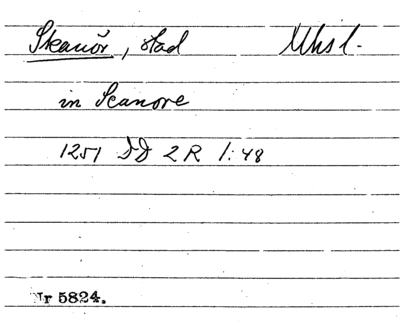 Skanör, stad Mhsl.
in Scanore
1251 DD 2 R 1:48
Nr 5824.